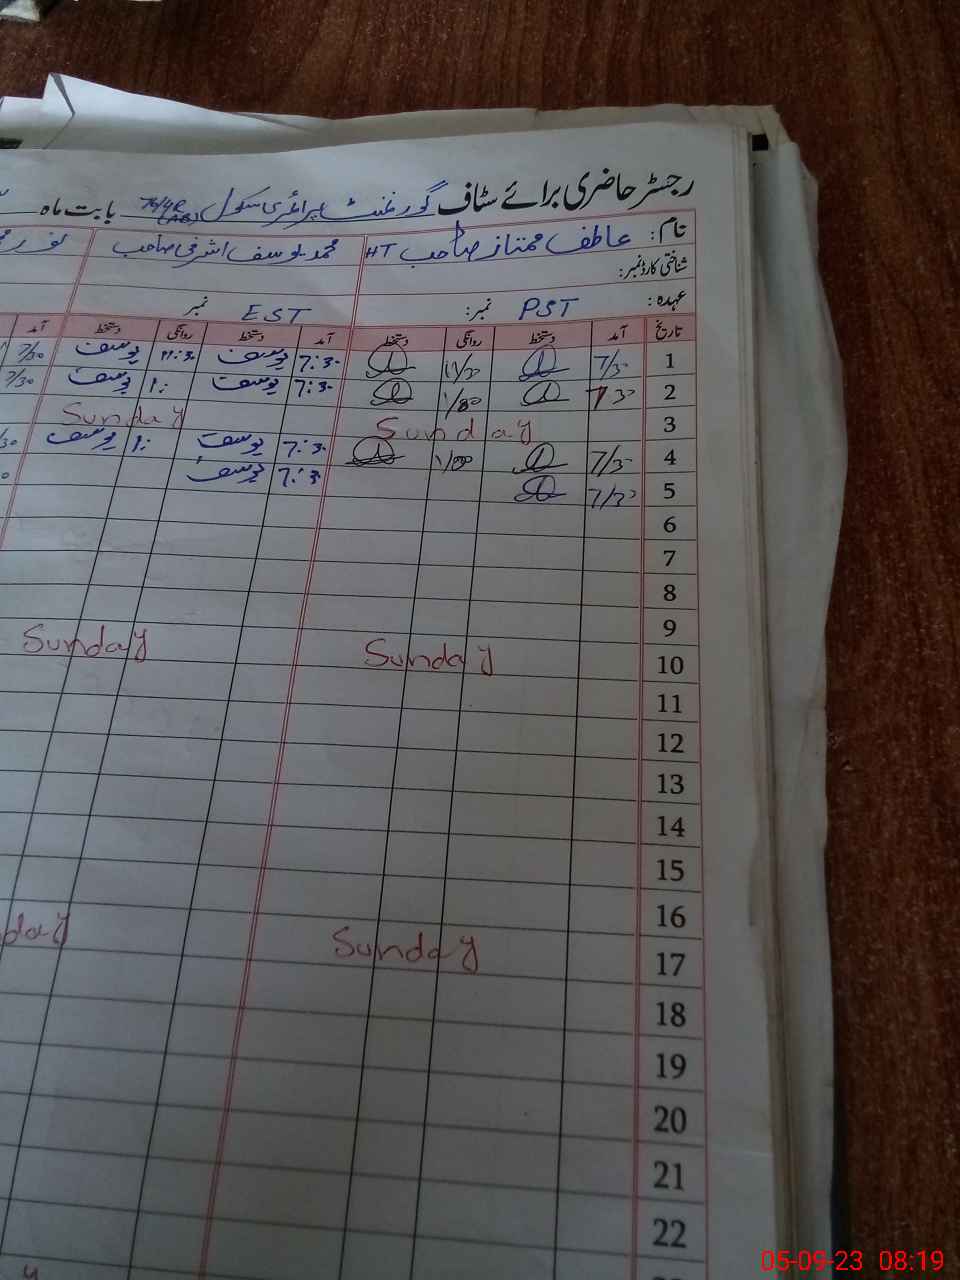 رجسٹر حاضری برائے سٹاف گورنمنٹ پرائمری سکول 76/4R بابت ماہ
نام: عاطف ممتاز صاحب HT محمد یوسف اشرفی صاحب
شناختی کارڈ نمبر:
عہدہ: PST نمبر: EST نمبر
تاریخ آمد دستخط روانگی دستخط آمد دستخط روانگی دستخط آمد
1 7/30 11/30 7:30 یوسف 11:30 یوسف 7/30
2 7 30 1/80 7:30 یوسف 1: یوسف 7/30
3 Sunday Sunday
4 7/30 1/00 7:30 یوسف 1: یوسف
5 7/30 7:30 یوسف
6
7
8
9
10 Sunday Sunday
11
12
13
14
15
16
17 Sunday
18
19
20
21
22
05-09-23 08:19